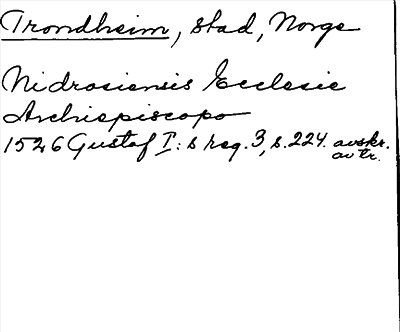 Trondheim, stad, Norge
Nidrosiensis Ecclesie
Archiepiscopo
1526 Gustaf I:s reg. 3, s. 224. avskr.
av tr.